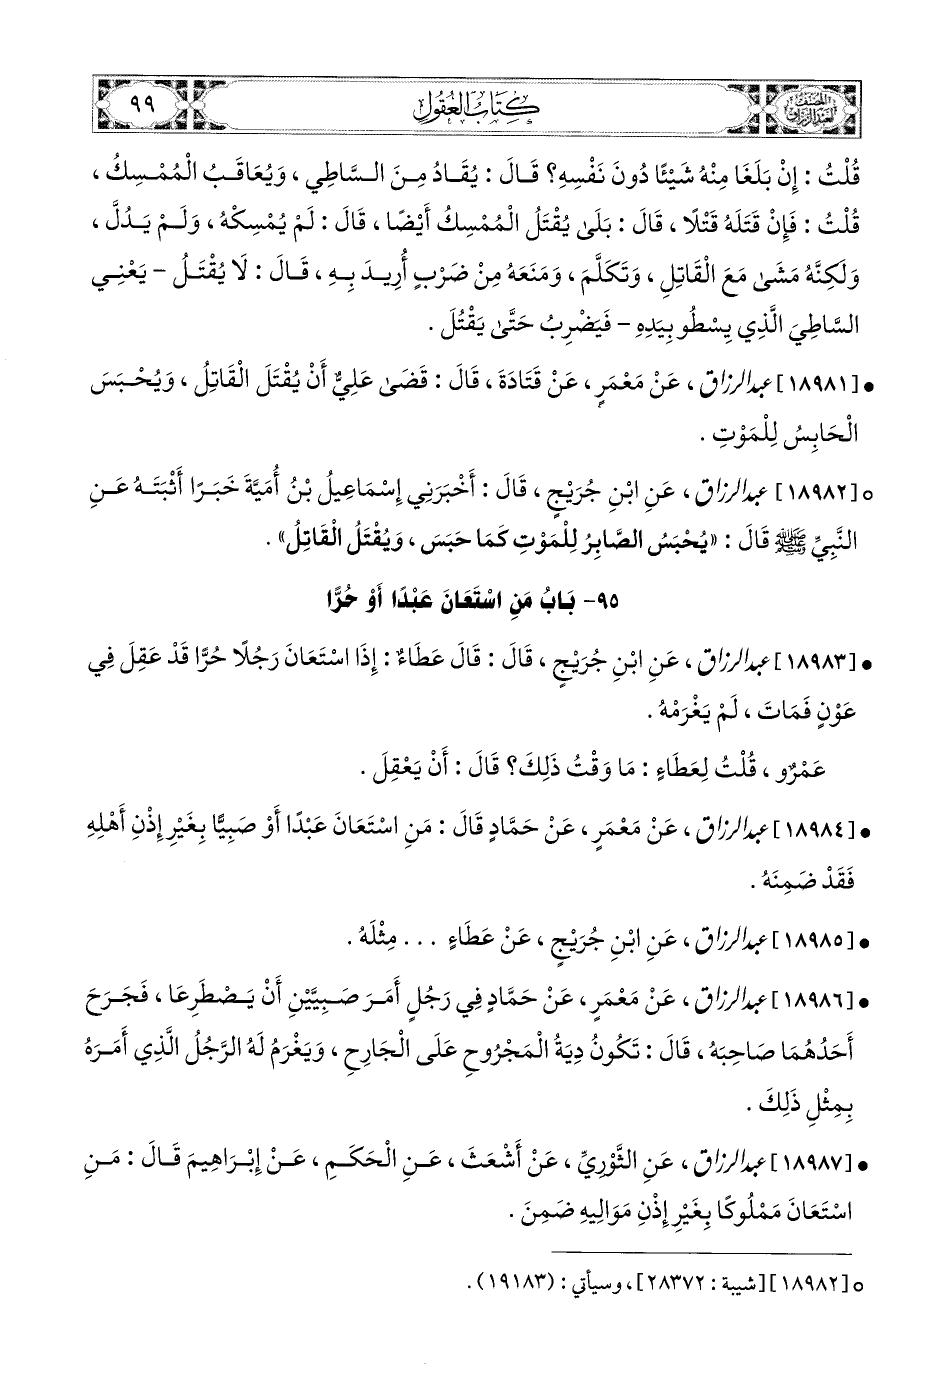 المصنف لعبد الرزاق
كتاب العقول
٩٩
قُلْتُ : إِنْ بَلَغَا مِنْهُ شَيْئًا دُونَ نَفْسِهِ؟ قَالَ : يُقَادُ مِنَ السَّاطِي ، وَيُعَاقَبُ الْمُمْسِكُ ،
قُلْتُ : فَإِنْ قَتَلَهُ قَتْلًا ، قَالَ : بَلَى يُقْتَلُ الْمُمْسِكُ أَيْضًا ، قَالَ : لَمْ يُمْسِكْهُ ، وَلَمْ يَدُلَّ ،
وَلَكِنَّهُ مَشَىٰ مَعَ الْقَاتِلِ ، وَتَكَلَّمَ ، وَمَنَعَهُ مِنْ ضَرْبٍ أُرِيدَ بِهِ ، قَالَ : لَا يُقْتَلُ - يَعْنِي
السَّاطِيَ الَّذِي يِسْطُو بِيَدِهِ - فَيَضْرِبُ حَتَّىٰ يَقْتُلَ .
• [١٨٩٨١] عبد الرزاق ، عَنْ مَعْمَرٍ ، عَنْ قَتَادَةَ ، قَالَ : قَضَىٰ عَلِيٌّ أَنْ يُقْتَلَ الْقَاتِلُ ، وَيُحْبَسَ
الْحَابِسُ لِلْمَوْتِ .
○ [١٨٩٨٢] عبد الرزاق ، عَنِ ابْنِ جُرَيْجٍ ، قَالَ : أَخْبَرَنِي إِسْمَاعِيلُ بْنُ أُمَيَّةَ خَبَرًا أَثْبَتَهُ عَنِ
النَّبِيِّ ﷺ قَالَ : «يُحْبَسُ الصَّابِرُ لِلْمَوْتِ كَمَا حَبَسَ ، وَيُقْتَلُ الْقَاتِلُ» .
٩٥- بَابُ مَنِ اسْتَعَانَ عَبْدًا أَوْ حُرًّا
• [١٨٩٨٣] عبد الرزاق ، عَنِ ابْنِ جُرَيْجٍ ، قَالَ : قَالَ عَطَاءٌ : إِذَا اسْتَعَانَ رَجُلًا حُرًّا قَدْ عَقِلَ فِي
عَوْنٍ فَمَاتَ ، لَمْ يَغْرَمْهُ .
عَمْرٌو ، قُلْتُ لِعَطَاءٍ : مَا وَقْتُ ذَلِكَ؟ قَالَ : أَنْ يَعْقِلَ .
• [١٨٩٨٤] عبد الرزاق ، عَنْ مَعْمَرٍ ، عَنْ حَمَّادٍ قَالَ : مَنِ اسْتَعَانَ عَبْدًا أَوْ صَبِيًّا بِغَيْرِ إِذْنِ أَهْلِهِ
فَقَدْ ضَمِنَهُ .
• [١٨٩٨٥] عبد الرزاق ، عَنِ ابْنِ جُرَيْجٍ ، عَنْ عَطَاءٍ ... مِثْلَهُ .
• [١٨٩٨٦] عبد الرزاق ، عَنْ مَعْمَرٍ ، عَنْ حَمَّادٍ فِي رَجُلٍ أَمَرَ صَبِيَّيْنِ أَنْ يَصْطَرِعَا ، فَجَرَحَ
أَحَدُهُمَا صَاحِبَهُ ، قَالَ : تَكُونُ دِيَةُ الْمَجْرُوحِ عَلَى الْجَارِحِ ، وَيَغْرَمُ لَهُ الرَّجُلُ الَّذِي أَمَرَهُ
بِمِثْلِ ذَلِكَ .
• [١٨٩٨٧] عبد الرزاق ، عَنِ الثَّوْرِيِّ ، عَنْ أَشْعَثَ ، عَنِ الْحَكَمِ ، عَنْ إِبْرَاهِيمَ قَالَ : مَنِ
اسْتَعَانَ مَمْلُوكًا بِغَيْرِ إِذْنِ مَوَالِيهِ ضَمِنَ .
○ [١٨٩٨٢] [شيبة : ٢٨٣٧٢] ، وسيأتي : (١٩١٨٣) .